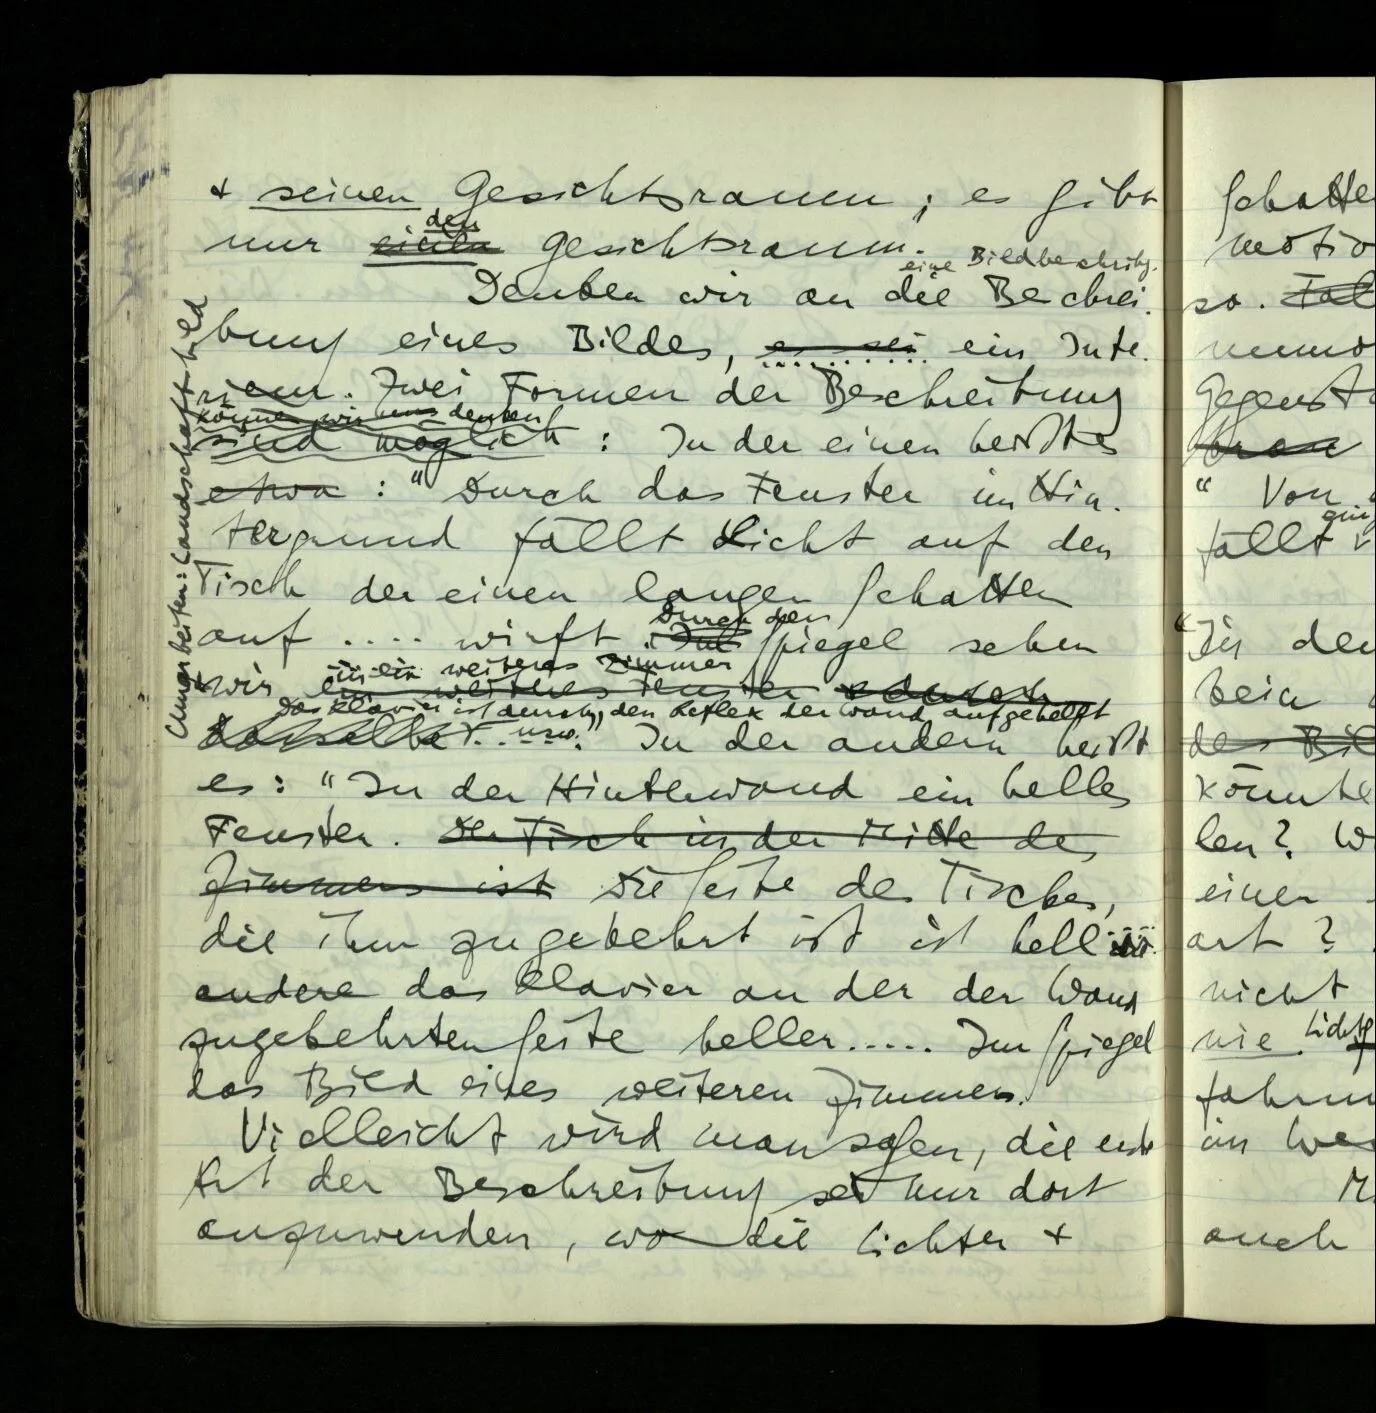 + seinen Gesichtsraum; es gibt
den
nur einen Gesichtsraum.
eine Bildbeschrbg.
Denken wir an die Beschrei-
bung eines Bildes, es sei ein Inte-
rieur. Zwei Formen der Beschreibung
können wir uns denken
sind möglich: In der einen heißt es
etwa: "Durch das Fenster im Hin-
tergrund fällt Licht auf den
Tisch der einen langen Schatten
durch den
auf .... wirft. Im Spiegel sehen
in ein weiteres Zimmer
wir ein weiteres Fenster + durch
das Klavier ist durch den Reflex der Wand aufgehellt
dasselbe ... usw." In der andern heißt
es: "In der Hinterwand ein helles
Fenster. Der Tisch in der Mitte des
Zimmers ist Die Seite des Tisches,
die ihm zugekehrt ist ist hell
andere das Klavier an der der Wand
zugekehrten Seite heller..... Im Spiegel
das Bild eines weiteren Zimmers.
Vielleicht wird man sagen, die erste
Art der Beschreibung sei nur dort
anzuwenden, wo die Lichter +
Umarbeiten: Landschaftsbild
Schatte
motio
so.
Gegensta
" Von
fällt
"In der
kein
des Bil
könnte
len? W
einer
art?
nicht
nie. Licht
in We
auch